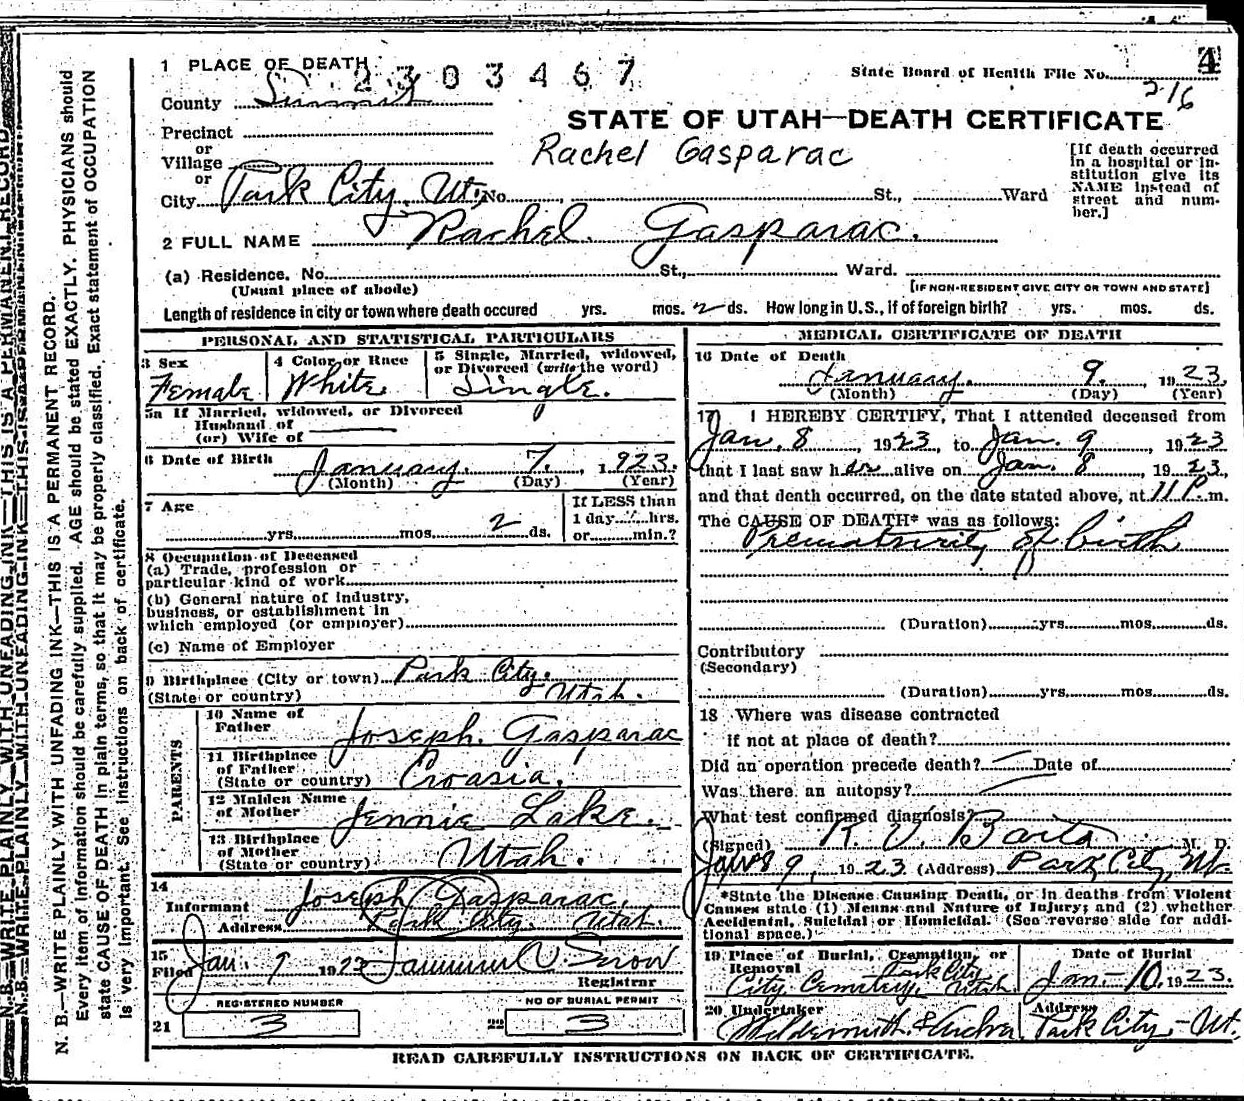 1 PLACE OF DEATH
2303467
State Board of Health File No. 4
216
County Summit
STATE OF UTAH—DEATH CERTIFICATE
Precinct
or
Village
or
City Park City, Ut. No. St., Ward
Rachel Gasparac
[If death occurred
in a hospital or in-
stitution give its
NAME instead of
street and num-
ber.]
2 FULL NAME Rachel. Gasparac.
(a) Residence. No. St., Ward.
(Usual place of abode)
[IF NON-RESIDENT GIVE CITY OR TOWN AND STATE]
Length of residence in city or town where death occured yrs. mos. 2 ds. How long in U.S., if of foreign birth? yrs. mos. ds.
PERSONAL AND STATISTICAL PARTICULARS
3 Sex
Female
4 Color or Race
White.
5 Single, Married, widowed,
or Divorced (write the word)
Single.
5a If Married, widowed, or Divorced
Husband of
(or) Wife of
6 Date of Birth January. 7. , 1923.
(Month) (Day) (Year)
7 Age
yrs. mos. 2 ds.
If LESS than
1 day hrs.
or min.?
8 Occupation of Deceased
(a) Trade, profession or
particular kind of work
(b) General nature of industry,
business, or establishment in
which employed (or employer)
(c) Name of Employer
9 Birthplace (City or town) Park City.
(State or country) Utah.
PARENTS
10 Name of
Father Joseph. Gasparac
11 Birthplace
of Father
(State or country) Croasia.
12 Maiden Name
of Mother Jennie Lake.
13 Birthplace
of Mother
(State or country) Utah.
14
Informant Joseph Gasparac
Address Park City. Utah.
15
Filed Jan. 9 1923 Snow
Registrar
REGISTERED NUMBER
21 3
NO OF BURIAL PERMIT
22 3
MEDICAL CERTIFICATE OF DEATH
16 Date of Death
January. 9. , 1923.
(Month) (Day) (Year)
17 I HEREBY CERTIFY, That I attended deceased from
Jan. 8 1923 to Jan. 9 , 1923
that I last saw her alive on Jan. 8 , 1923,
and that death occurred, on the date stated above, at 11 P. m.
The CAUSE OF DEATH* was as follows:
Prematurity of birth
(Duration) yrs. mos. ds.
Contributory
(Secondary)
(Duration) yrs. mos. ds.
18 Where was disease contracted
if not at place of death?
Did an operation precede death? Date of
Was there an autopsy?
What test confirmed diagnosis?
(Signed) M. D.
Jan 9, 1923 (Address) Park City, Ut.
*State the Disease Causing Death, or in deaths from Violent
Causes state (1) Means and Nature of Injury; and (2) whether
Accidental, Suicidal or Homicidal. (See reverse side for addi-
tional space.)
19 Place of Burial, Cremation, or
Removal Park City
City Cemetery, Utah.
Date of Burial
Jan- 10, 1923.
20 Undertaker
Address
Park City - Ut.
READ CAREFULLY INSTRUCTIONS ON BACK OF CERTIFICATE.
N. B.—WRITE PLAINLY WITH UNFADING INK—THIS IS A PERMANENT RECORD.
Every item of information should be carefully supplied. AGE should be stated EXACTLY. PHYSICIANS should
state CAUSE OF DEATH in plain terms, so that it may be properly classified. Exact statement of OCCUPATION
is very important. See instructions on back of certificate.
N. B.—WRITE PLAINLY WITH UNFADING INK—THIS IS A PERMANENT RECORD